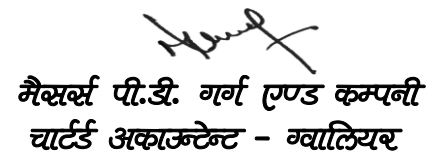 मैसर्स पी.डी. गर्ग एण्ड कम्पनी
चार्टर्ड अकाउन्टेन्ट - ग्वालियर